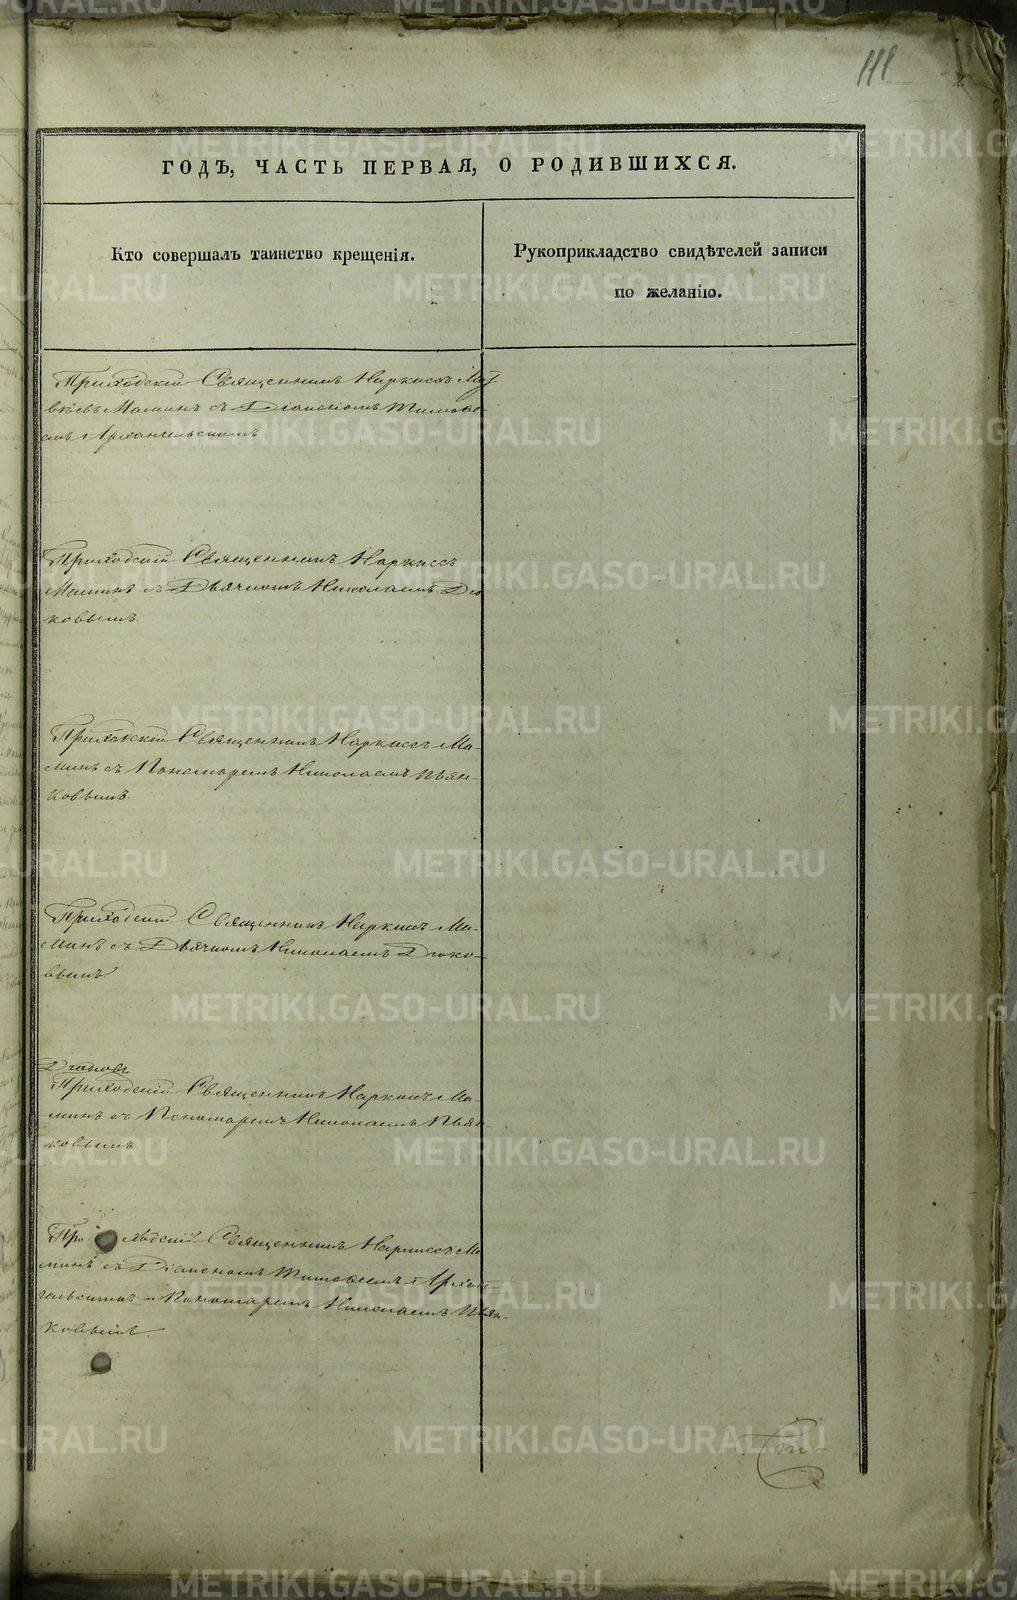 111
ГОДЪ, ЧАСТЬ ПЕРВАЯ, О РОДИВШИХСЯ.
Кто совершалъ таинство крещенія.
Рукоприкладство свидѣтелей записи
по желанію.
Приходскій Священникъ Наркиссъ Мат-
вѣевъ Маминъ съ Діакономъ Тимофе-
емъ Архангельскимъ
Приходскій Священникъ Наркиссъ
Маминъ съ Дьячкомъ Николаемъ Дю
ковымъ.
Приходскій Священникъ Наркиссъ Ма-
минъ съ Пономаремъ Николаемъ Пьян-
ковымъ.
Приходскій Священникъ Наркисъ Ма-
минъ съ Дьячкомъ Николаемъ Дюко-
вымъ
Приходскій Священникъ Наркисъ Ма-
минъ съ Пономаремъ Николаемъ Пьян-
ковымъ.
Приходскій Священникъ Наркиссъ Ма
минъ съ Діакономъ Тимофеемъ Архан-
гельскимъ и Пономаремъ Николаемъ Пьян-
ковымъ.
METRIKI.GASO-URAL.RU